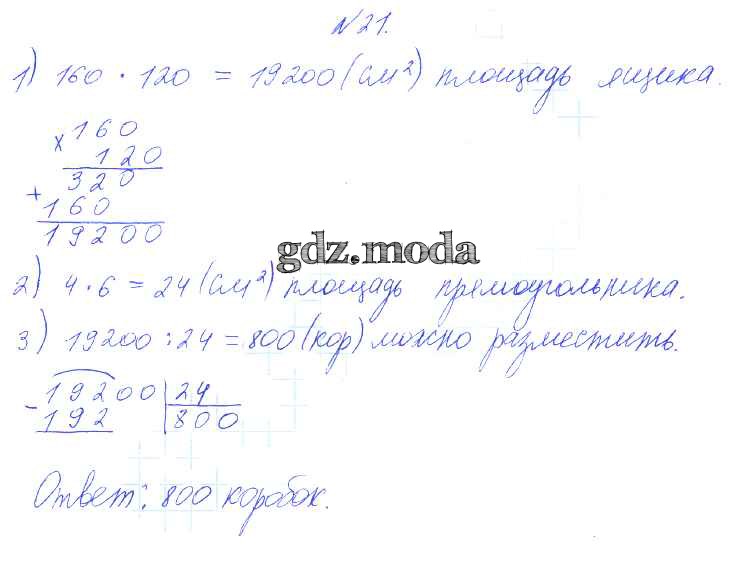 №21.
1) 160 · 120 = 19200 (см²) площадь ящика.
x 160
120
+ 320
160
19200
gdz.moda
2) 4 · 6 = 24 (см²) площадь прямоугольника.
3) 19200 : 24 = 800 (кор) можно разместить.
- 19200 | 24
192 | 800
Ответ: 800 коробок.